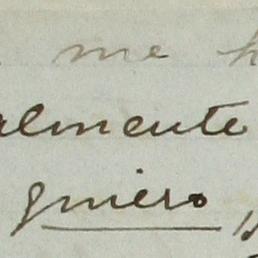 me h
almente
quiero,